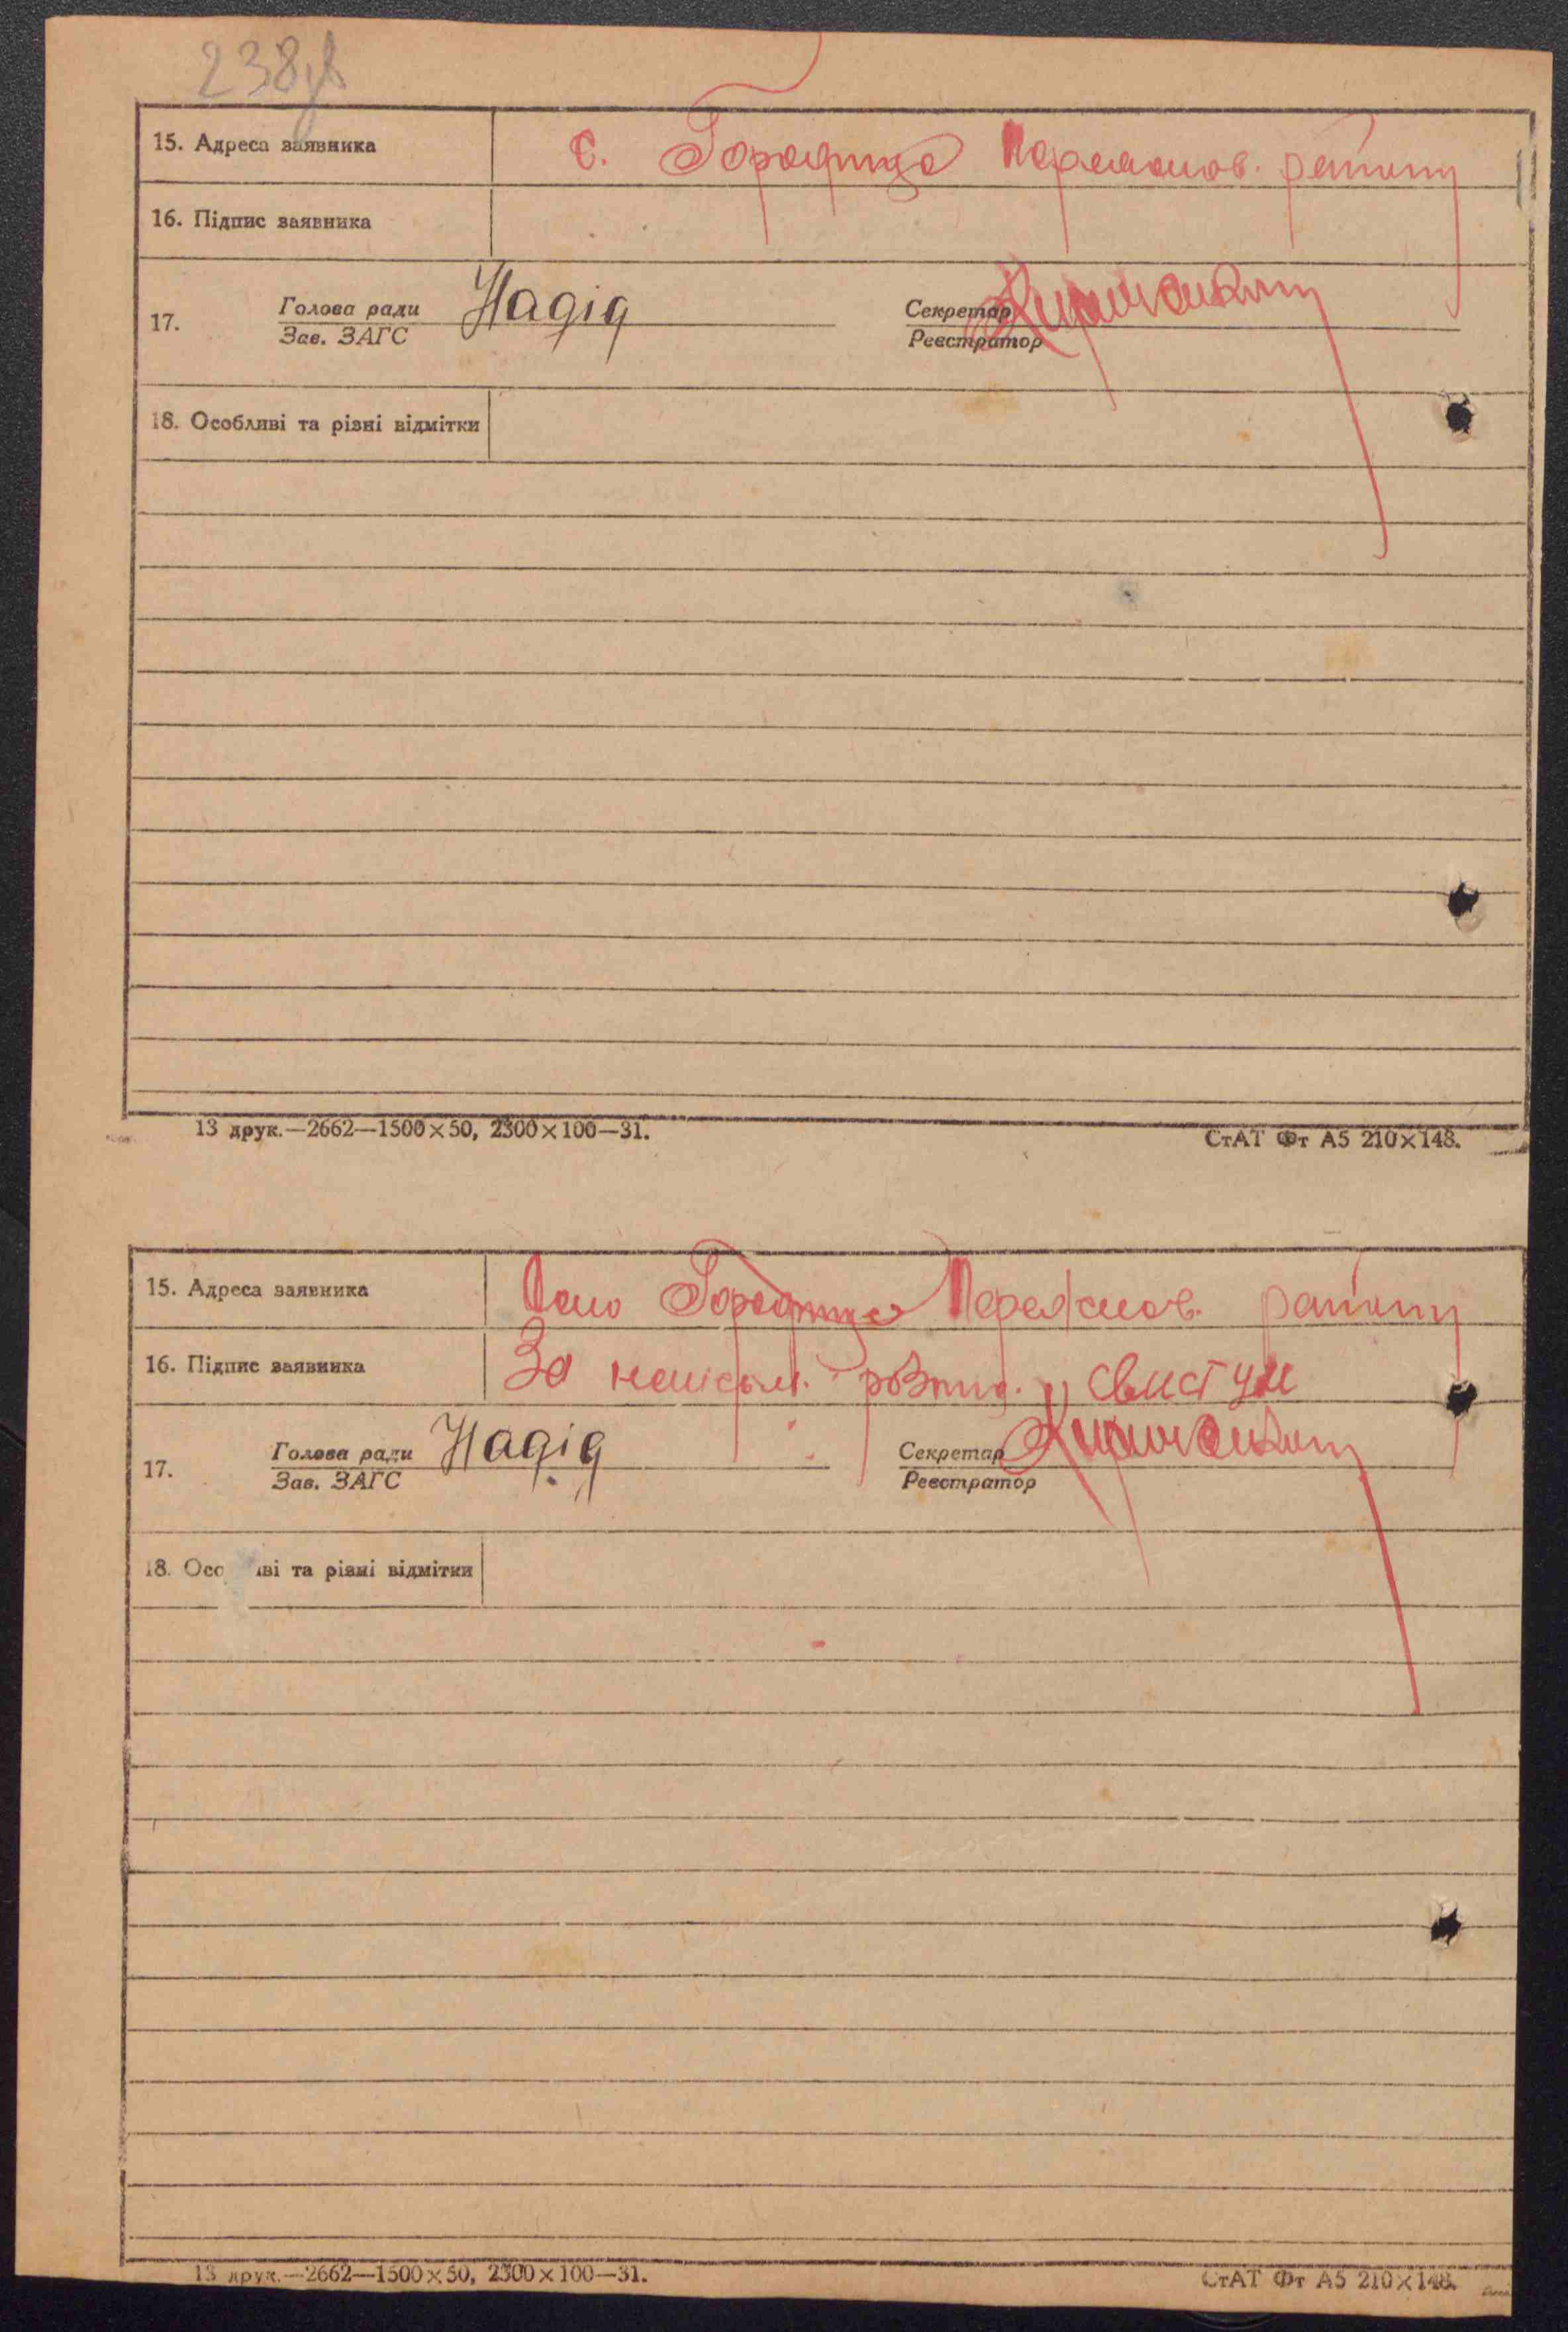 238
15. Адреса заявника с. Городище району
16. Підпис заявника
17. Голова ради Надід Секретар
Зав. ЗАГС Реєстратор
18. Особливі та різні відмітки
13 друк.—2662—1500×50, 2300×100—31. СтАТ Фт А5 210×148.
15. Адреса заявника Село Городище району
16. Підпис заявника За неписьм. розпис. Свистун
17. Голова ради Надід Секретар
Зав. ЗАГС Реєстратор
18. Осо ві та різні відмітки
13 друк.—2662—1500×50, 2300×100—31. СтАТ Фт А5 210×148.